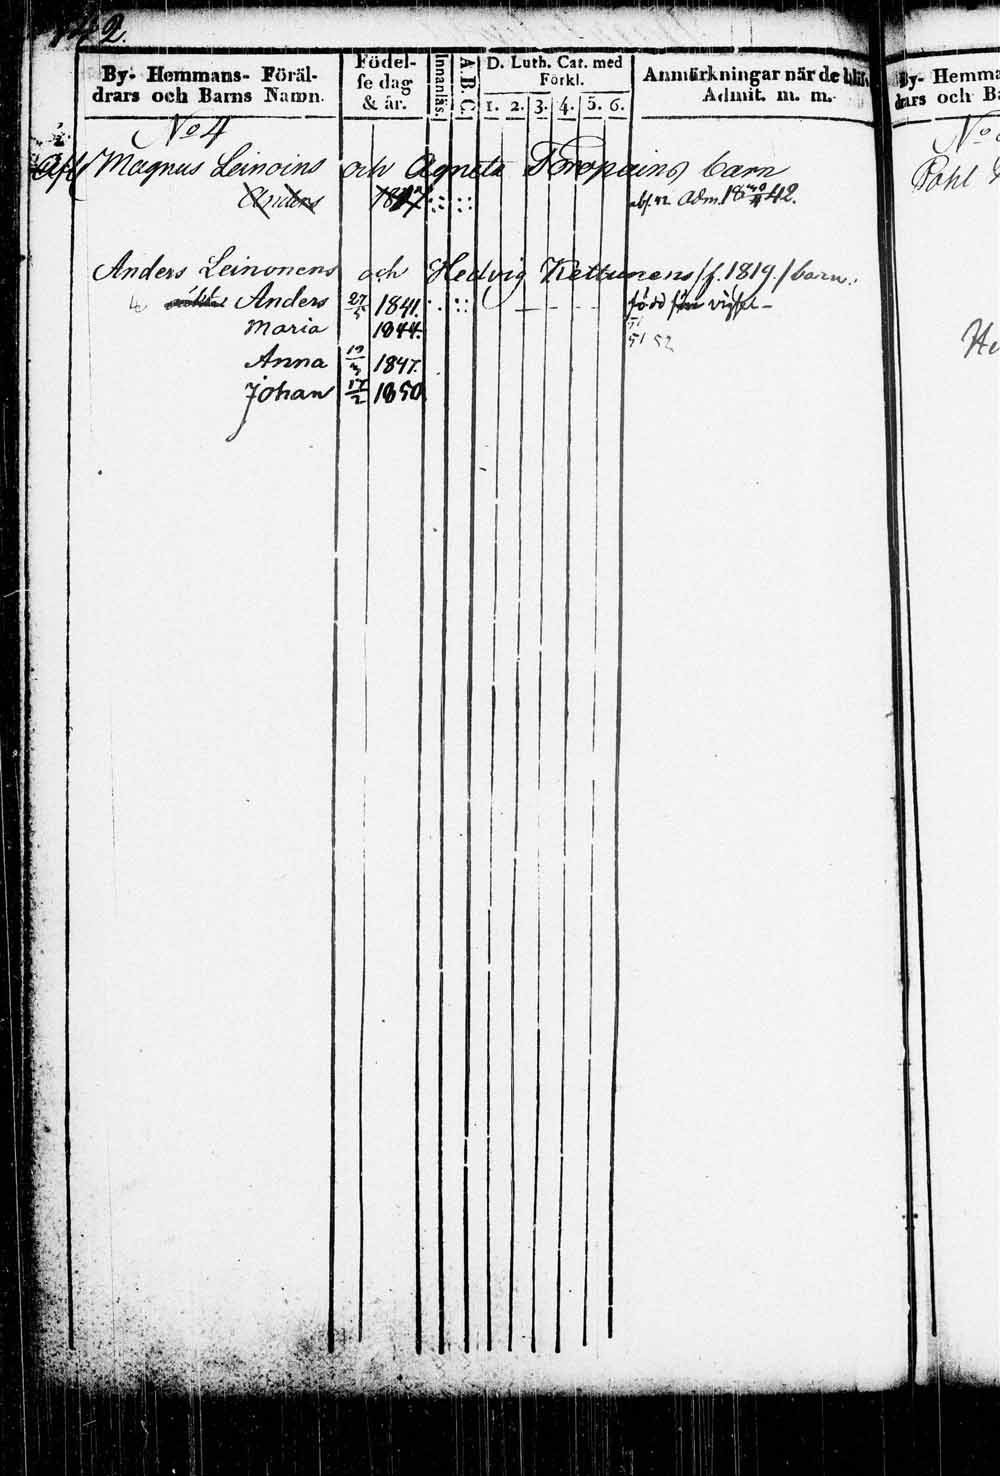 142.
By- Hemmans- Föräl-
drars och Barns Namn.
Födel-
se dag
& år.
Innanläs.
A B C.
D. Luth. Cat. med
Förkl.
1. 2. 3. 4. 5. 6.
Anmärkningar när de
Admit. m. m.
No 4
Magnus Leinoins och Agneta Toropains barn
Anders 1817 :: :: Adm. 18 42.
Anders Leinonens och Hedvig Kettunens /f. 1819./ barn:
Anders 27/5 1841. född
Maria 1844. 51
51 52
Anna 19/3 1847.
Johan 17/2 1850
By- Hemma
drars och Ba
No
Påhl
He